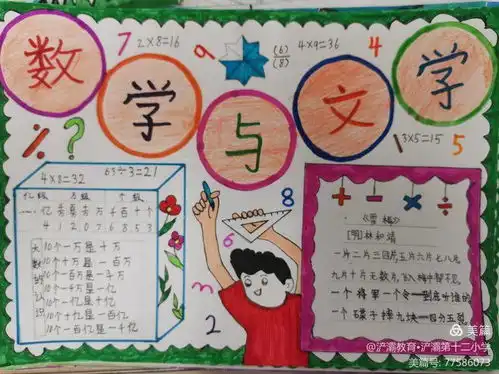 数学与文学
7
2×8=16
9
(6)
(8)
4×9=36
4
3×5=15
5
% ?
4×8=32
63÷3=21
亿级 万级 个级
4 1 2 0 7 6 8 5 3
大数的认识
10个一万是十万
10个十万是一百万
10个一百万是一千万
10个一千万是一亿
10个一亿是十亿
10个十亿是一百亿
10个一百亿是一千亿
8
6
3
2
+ - × ÷
《雪梅》
[明]林和靖
一片二片三四片,五片六片七八片
九片十片无数片,飞入梅中都不见
一个将军一个令
美篇
@浐灞教育·浐灞第十二小学
美篇号: 77586073